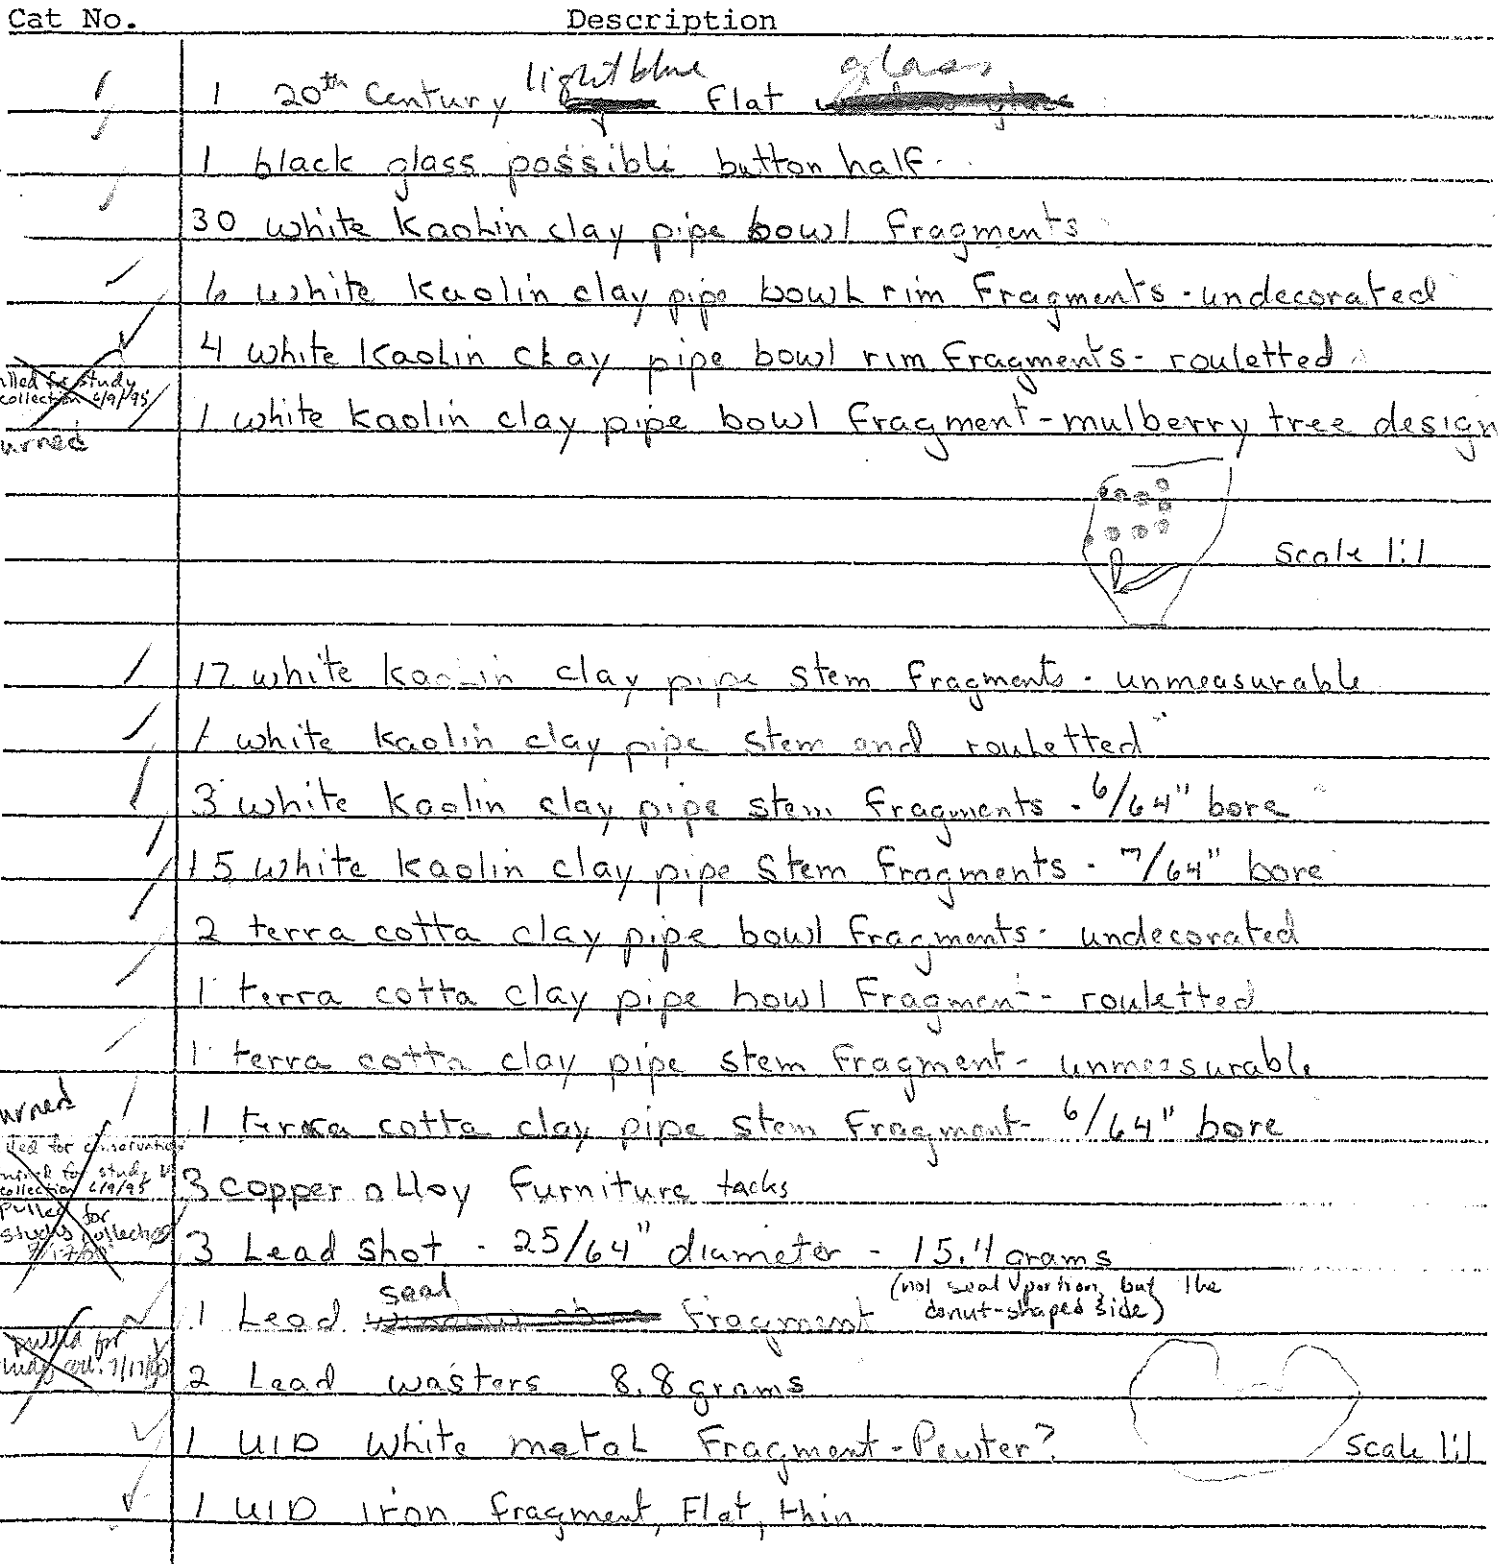 Cat No. Description
1 20th Century light blue Flat glass
1 black glass possible button half
30 white Kaolin clay pipe bowl Fragments
6 white Kaolin clay pipe bowl rim Fragments - undecorated
4 white Kaolin clay pipe bowl rim Fragments - rouletted
study
collection 6/9/95
1 white Kaolin clay pipe bowl Fragment - mulberry tree design
urned
Scale 1:1
17 white Kaolin clay pipe stem Fragments - unmeasurable
1 white Kaolin clay pipe stem and rouletted
3 white Kaolin clay pipe stem Fragments - 6/64" bore
15 white Kaolin clay pipe Stem Fragments - 7/64" bore
2 terra cotta clay pipe bowl Fragments - undecorated
1 terra cotta clay pipe bowl Fragment - rouletted
1 terra cotta clay pipe stem Fragment - unmeasurable
urned
1 terra cotta clay pipe stem Fragment - 6/64" bore
for conservation
for study
collection 6/9/95
3 copper alloy Furniture tacks
Pulled for
study collection
3 Lead shot - 25/64" diameter - 15.4 grams
1 Lead seal Fragment (not seal portion, but the
donut-shaped side)
pulled for
2 Lead wasters 8.8 grams
1 UID White metal Fragment - Pewter?
Scale 1:1
1 UID iron fragment, Flat, thin